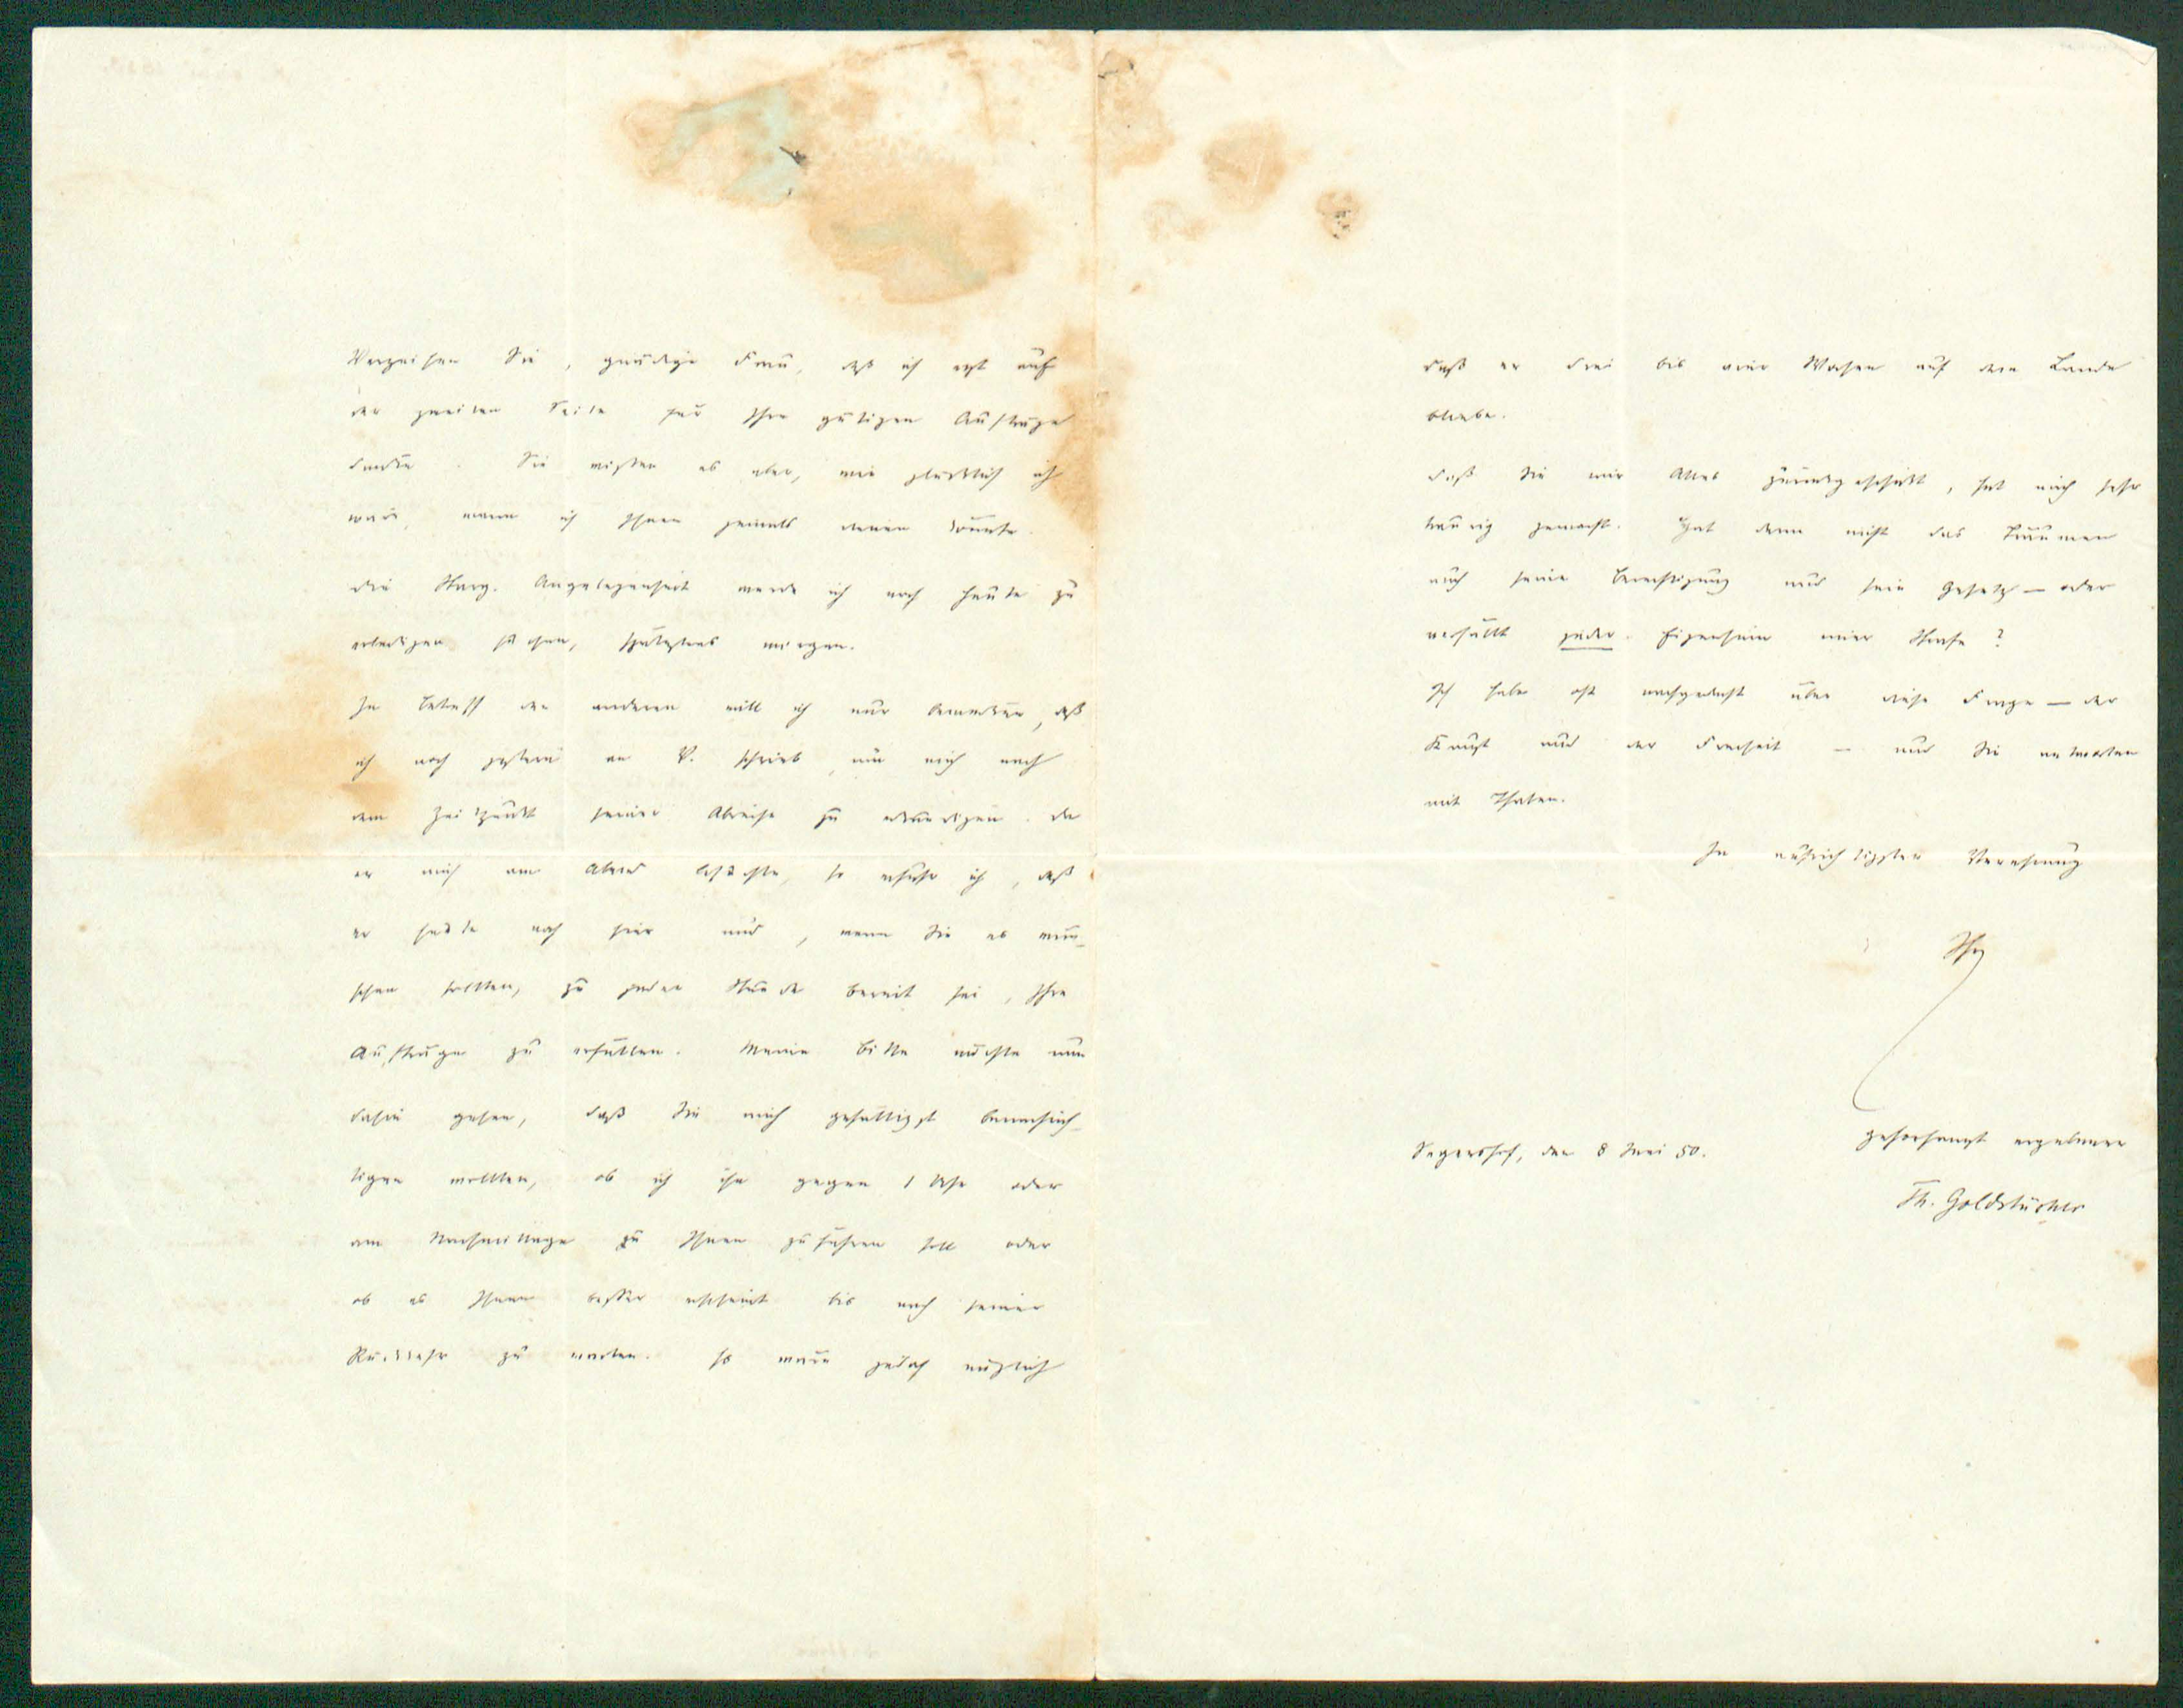 Verzeihen Sie, gnädige Frau, daß ich erst auf
der zweiten Seite für Ihre gütigen Aufträge
danke. Sie wissen es aber, wie glücklich ich
wäre, wenn ich Ihnen jemals dienen könnte.
Die Angelegenheit werde ich noch heute zu
erledigen suchen, spätestens morgen.
In Betreff der anderen will ich nur bemerken, daß
ich noch gestern an V. schrieb, um mich nach
dem Zeitpunkt seiner Abreise zu erkundigen. Da
er mich am Abend besuchte, so erfuhr ich, daß
er heute noch hier und, wenn Sie es wün-
schen sollten, zu jeder Stunde bereit sei, Ihre
Aufträge zu erfüllen. Meine Bitte möchte nun
dahin gehen, daß Sie mich gefälligst benachrich-
tigen wollten, ob ich ihn gegen 1 Uhr oder
am Nachmittage zu Ihnen zuführen soll oder
ob es Ihnen besser erscheint bis nach seiner
Rückkehr zu warten. So wäre jedoch möglich
daß er drei bis vier Wochen auf dem Lande
bliebe.
Daß Sie mir Alles zurückgeschickt, hat mich sehr
traurig gemacht. Hat denn nicht das Träumen
auch seine Berechtigung und sein Gesetz — oder
verfällt jeder Eigensinn einer Strafe?
Ich habe oft nachgedacht über diese Frage — der
Kunst und der Freiheit — und Sie antworten
mit Thaten.
In aufrichtigster Verehrung
Ihr
gehorsamst ergebener
den 8 Juni 50.
Th. Goldstücker